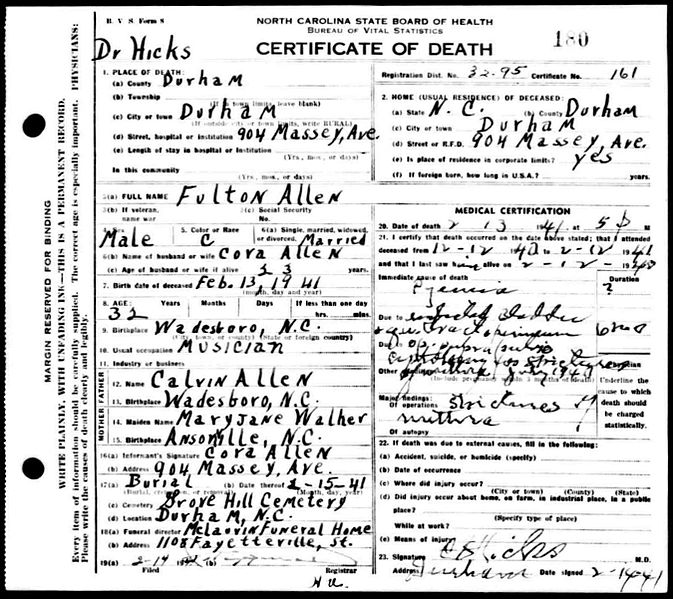 B. V. S. Form 8
NORTH CAROLINA STATE BOARD OF HEALTH
BUREAU OF VITAL STATISTICS
CERTIFICATE OF DEATH
180
Dr Hicks
Registration Dist. No. 32-95 Certificate No. 161
MARGIN RESERVED FOR BINDING
WRITE PLAINLY, WITH UNFADING INK—THIS IS A PERMANENT RECORD.
Every item of information should be carefully supplied. The correct age is especially important. PHYSICIANS:
Please write the causes of death clearly and legibly.
1. PLACE OF DEATH:
(a) County Durham
(b) Township
(If town limits, leave blank)
(c) City or town Durham
(If outside city or town limits, write RURAL)
(d) Street, hospital or institution 904 Massey, Ave.
(e) Length of stay in hospital or institution
(Yrs., mos., or days)
In this community
(Yrs., mos., or days)
2. HOME (USUAL RESIDENCE) OF DECEASED:
(a) State N. C. (b) County Durham
(c) City or town Durham
(d) Street or R.F.D. 904 Massey, Ave.
(e) Is place of residence in corporate limits? yes
(f) If foreign born, how long in U.S.A.? years.
3(a) FULL NAME Fulton Allen
3(b) If veteran, name war
3(c) Social Security No.
4. Sex Male
5. Color or Race C
6(a) Single, married, widowed, or divorced. Married
6(b) Name of husband or wife Cora Allen
(c) Age of husband or wife if alive years.
7. Birth date of deceased Feb. 13, 1941
(month, day and year)
8. AGE: Years Months Days If less than one day
32 hrs. mins.
9. Birthplace Wadesboro, N.C.
(City, town, or county) (State or foreign country)
10. Usual occupation Musician
11. Industry or business
FATHER
12. Name Calvin Allen
13. Birthplace Wadesboro, N.C.
MOTHER
14. Maiden Name Mary Jane Walker
15. Birthplace Ansonville, N.C.
16(a) Informant's Signature Cora Allen
(b) Address 904 Massey, Ave.
17(a) Burial (b) Date thereof 2-15-41
(Burial, cremation, or removal) (Month, day, year)
(c) Cemetery Grove Hill Cemetery
(d) Location Durham, N.C.
18(a) Funeral director McLaurin Funeral Home
(b) Address 1108 Fayetteville, St.
19(a) 2-14
Filed Registrar
MEDICAL CERTIFICATION
20. Date of death 2 13 1941 at 5 P M
21. I certify that death occurred on the above stated; that I attended
deceased from 12-12 1940 to 2-12-1941
and that I last saw alive on 2-12-19
Immediate cause of death Duration
Pyemia ?
Due to infected bladder
Due to
Other
(Include pregnancy within 3 months of death)
July 1940
Major findings:
Of operations strictures of
urethra
Of autopsy
Underline the cause to which death should be charged statistically.
22. If death was due to external causes, fill in the following:
(a) Accident, suicide, or homicide (specify)
(b) Date of occurrence
(c) Where did injury occur?
(City or town) (County) (State)
(d) Did injury occur about home, on farm, in industrial place, in a public
place?
(Specify type of place)
While at work?
(e) Means of injury
23. Signature Hicks M.D.
Address Durham Date signed 2-14-41